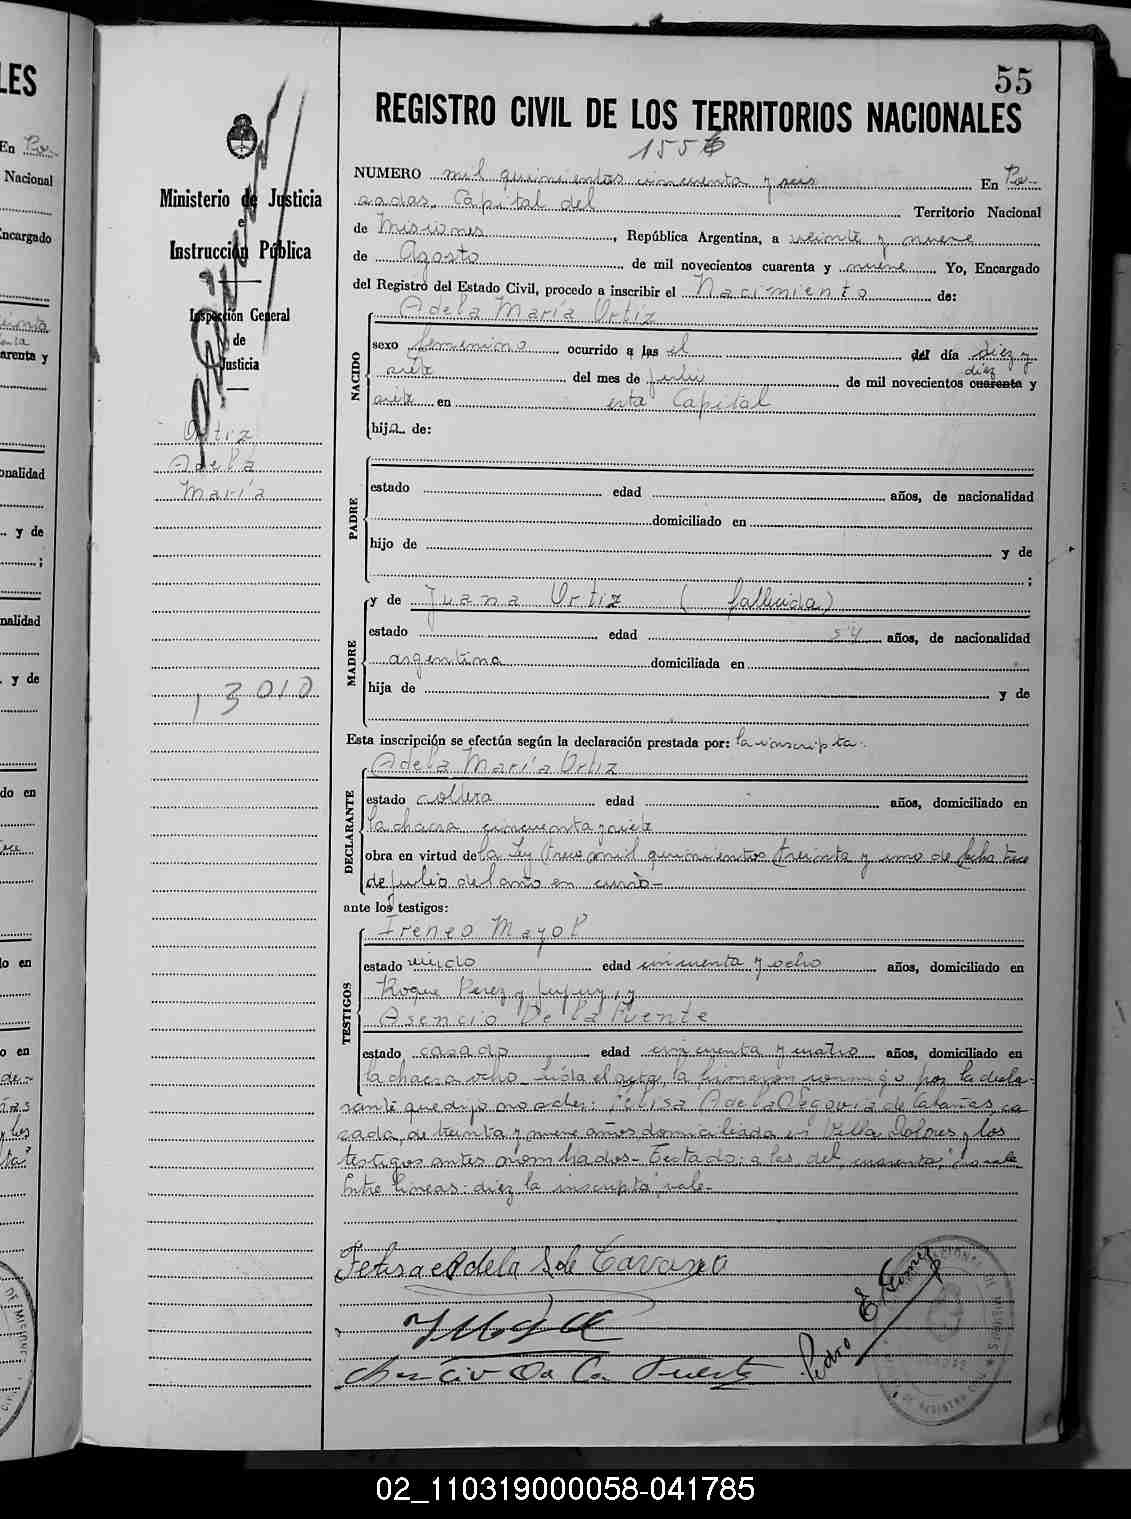 55
REGISTRO CIVIL DE LOS TERRITORIOS NACIONALES
1556
Ministerio de Justicia
e
Instrucción Pública
Inspección General
de
Justicia
Ortiz
Adela
María
13010
NUMERO mil quinientos cincuenta y seis En Po-
sadas, Capital del Territorio Nacional
de Misiones, República Argentina, a veinte y nueve
de Agosto de mil novecientos cuarenta y nueve Yo, Encargado
del Registro del Estado Civil, procedo a inscribir el Nacimiento de:
Adela María Ortiz
NACIDO
sexo femenino ocurrido a las el del día diez y
siete del mes de julio de mil novecientos cuarenta y
diez
siete en esta Capital
hija de:
PADRE
estado edad años, de nacionalidad
domiciliado en
hijo de y de
;
MADRE
y de Juana Ortiz (fallecida)
estado edad años, de nacionalidad
argentina domiciliada en
hija de y de
Esta inscripción se efectúa según la declaración prestada por: la inscripta.
Adela María Ortiz
DECLARANTE
estado soltera edad años, domiciliado en
la chacra cincuenta y siete
obra en virtud de la Ley trece mil quinientos treinta y uno de fecha trece
de julio del año en curso-
ante los testigos:
Ireneo Mayol
TESTIGOS
estado viudo edad cincuenta y ocho años, domiciliado en
Roque Perez y Jujuy, y
Asencio De la Puente
estado casado edad cincuenta y cuatro años, domiciliado en
la chacra ocho. Leída el acta, la firmaron conmigo por la decla-
rante que dijo no saber: Felisa Adela Segovia de Cabañas, ca
sada, de treinta y nueve años, domiciliada en Villa Dolores y los
testigos antes nombrados- Testado: a las, del, cuarenta: no vale
Entre líneas: diez la inscripta, vale-
Felisa Adela S de
Asencio De La Puente
Pedro E. Gomez
LES
En Po-
Nacional
Encargado
arenta y
onalidad
y de
;
nalidad
y de
do en
lo en
o en
02_110319000058-041785